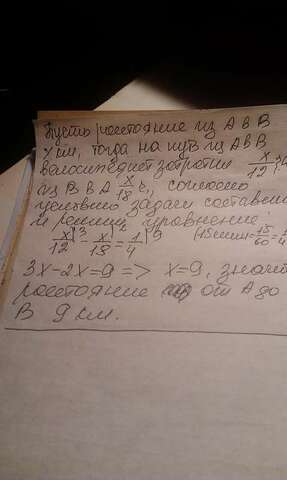 Пусть расстояние из А в В
х км, тогда на путь из А в В
велосипедист затратил x/12 ч,
из В в А x/18 ч, согласно
условию задачи составим
и решим уравнение:
x/12|3 - x/18 = 1/4|9 (15мин=15/60=1/4
3х-2х=9 => х=9, значит
расстояние от А до
В 9 км.